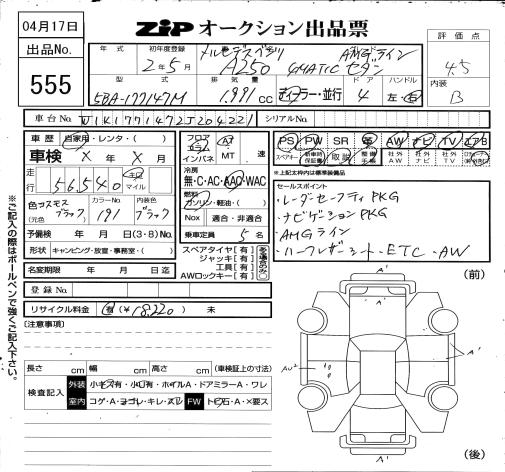 04月17日
出品No.
555
ZIP オークション出品票
評価点
4.5
内装
B
年式 初年度登録
2年5月
メルセデスベンツ
A250
AMGライン
4MATIC セダン
型式 排気量 ドア ハンドル
5BA-177147M 1.991 cc ディーラー・並行 4 左・右
車台No. W1K1771472J204221 シリアルNo.
車歴 自家用・レンタ・( )
車検 X年X月
走行 56,540 キロ マイル
色 コスモスブラック
(元色)
カラーNo. 191
内装色 ブラック
予備検 年 月 日(3・8)No.
形状 キャンピング・放置・事務室・( )
名変期限 年 月 日迄
登録No.
リサイクル料金 有(¥18,220) 未
フロア コラム インパネ AT MT 速
冷房
無・C・AC・AAC・WAC
燃料
ガソリン・軽油・( )
Nox 適合・非適合
乗車定員 5名
スペアタイヤ[有]
ジャッキ[有]
工具[有]
AWロックキー[有]
PS PW SR 革 AW ナビ TV エアB
スペアキー 新車時保証書 取説 社外AW 社外ナビ 社外TV
※上記太枠内は標準装備品
セールスポイント
・レーダーセーフティPKG
・ナビゲーションPKG
・AMGライン
・ハーフレザーシート・ETC・AW
[注意事項]
長さ cm 幅 cm 高さ cm (車検証上の寸法)
検査記入 外装 小キズ有・小凹有・ホイルA・ドアミラーA・ワレ
室内 コゲ・A・ヨゴレ・キレ・スレ FW トビ石A・X要ス
※ご記入の際はボールペンで強くご記入下さい。
(前)
A'
AU2
A'
A'
(後)